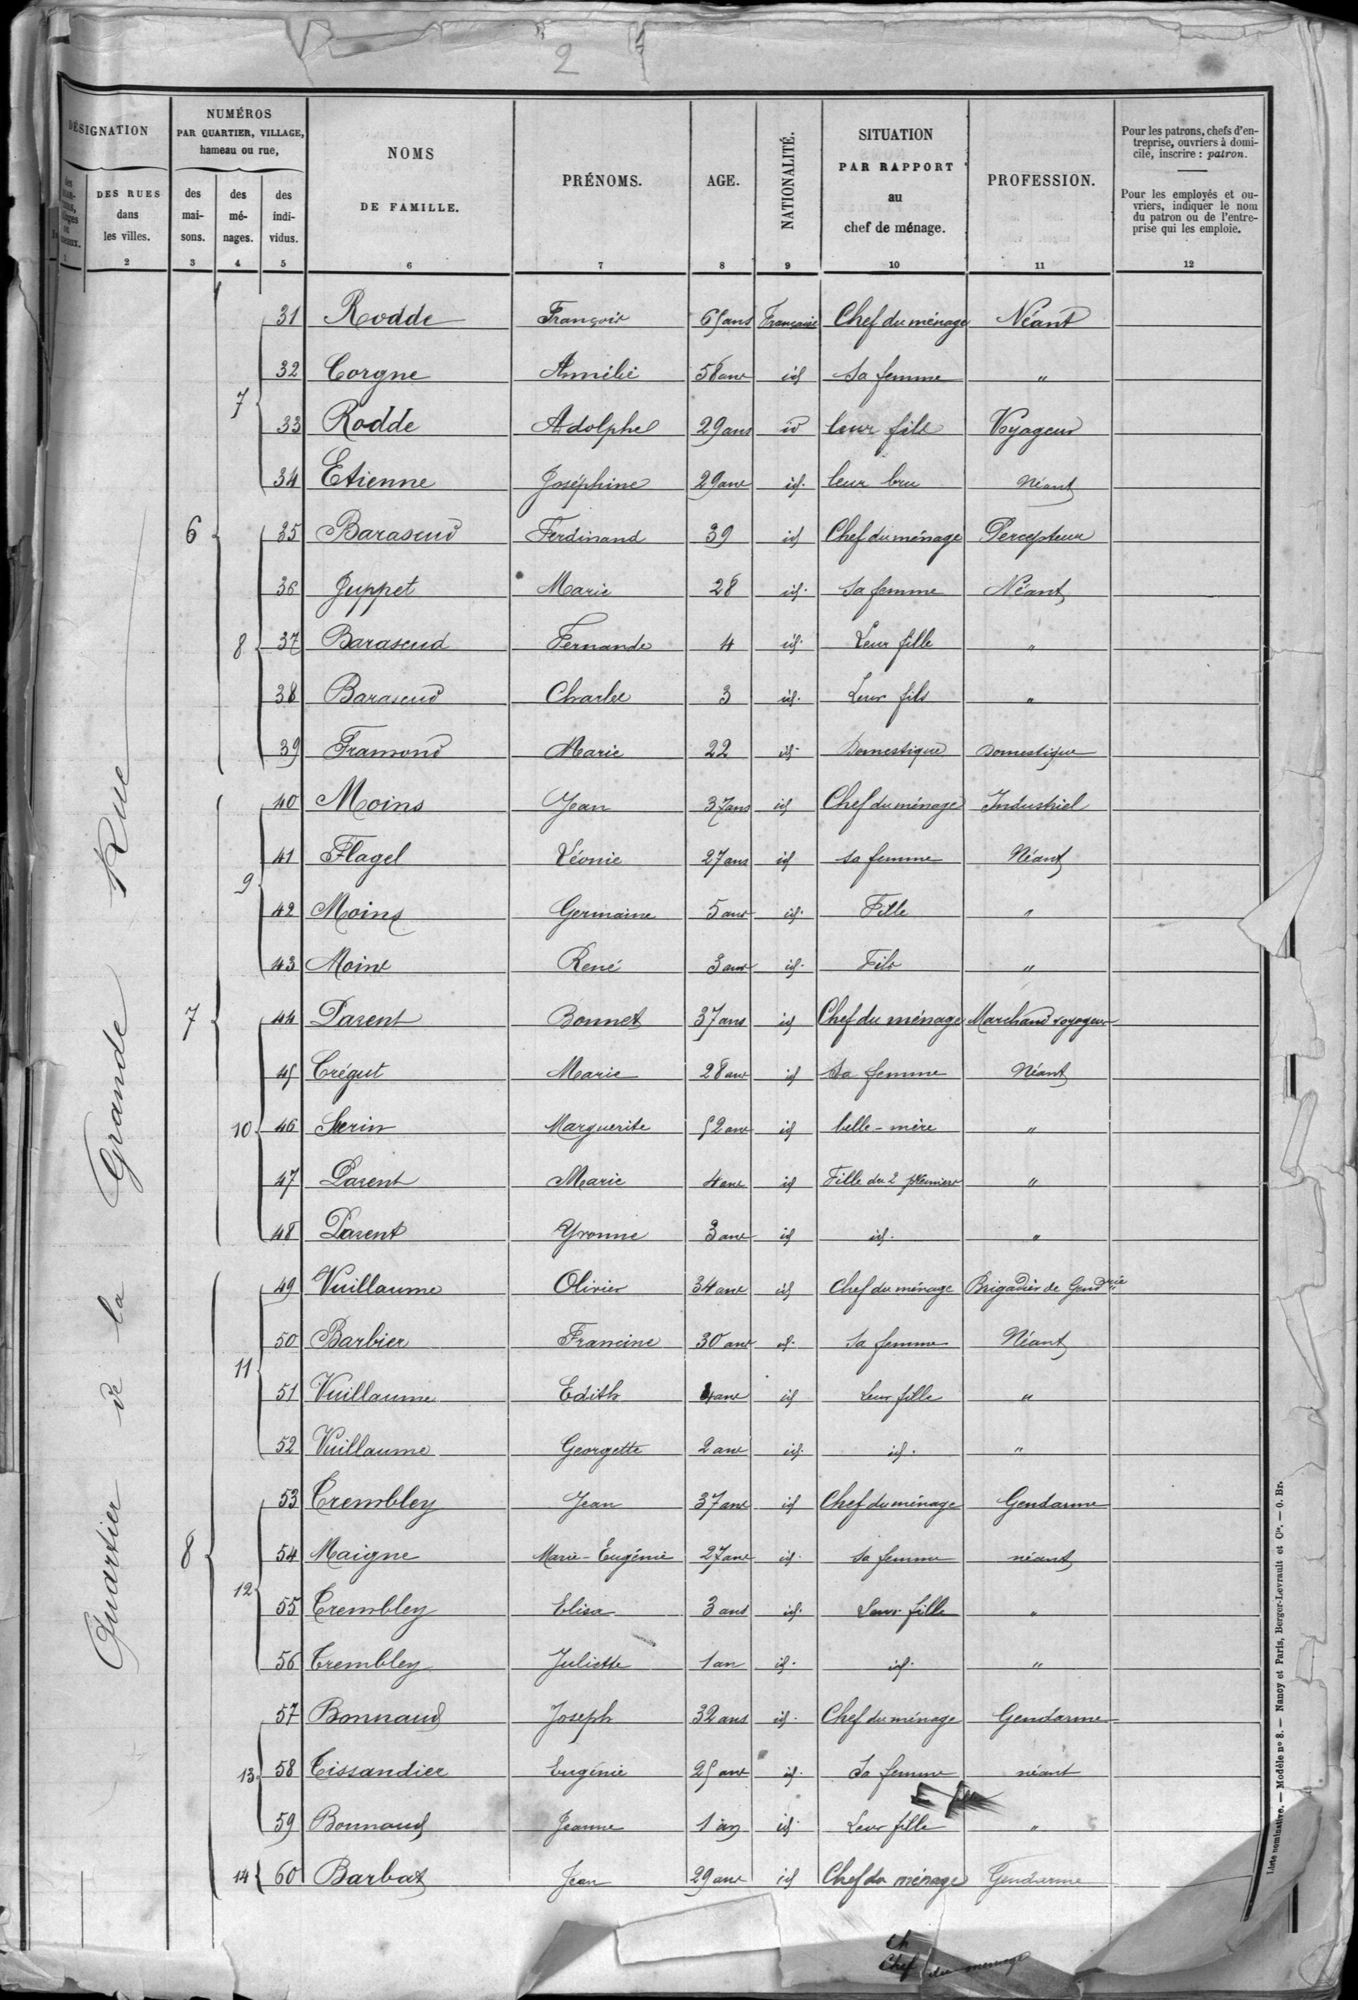 2
DÉSIGNATION
DES RUES
dans
les villes.
NUMÉROS
PAR QUARTIER, VILLAGE,
hameau ou rue,
des
mai-
sons.
des
mé-
nages.
des
indi-
vidus.
NOMS
DE FAMILLE.
PRÉNOMS.
AGE.
NATIONALITÉ.
SITUATION
PAR RAPPORT
au
chef de ménage.
PROFESSION.
Pour les patrons, chefs d'en-
treprise, ouvriers à domi-
cile, inscrire : patron.
Pour les employés et ou-
vriers, indiquer le nom
du patron ou de l'entre-
prise qui les emploie.
1 2 3 4 5 6 7 8 9 10 11 12
Quartier de la Grande Rue
31 Rodde François 65 ans Française Chef du ménage Néant
32 Corgne Amélie 58 ans id sa femme "
7
33 Rodde Adolphe 29 ans id leur fils Voyageur
34 Etienne Joséphine 29 ans id. leur bru Néant
6
35 Barascud Ferdinand 39 id Chef du ménage Percepteur
36 Juppet Marie 28 id. sa femme Néant
8 37 Barascud Fernande 4 id. Leur fille "
38 Barascud Charles 3 id. Leur fils "
39 Framond Marie 22 id. Domestique Domestique
40 Moins Jean 37 ans id Chef du ménage Industriel
41 Flagel Léonie 27 ans id sa femme Néant
9
42 Moins Germaine 5 ans id. Fille "
43 Moins René 3 ans id. Fils "
7
44 Parent Bonnet 37 ans id Chef du ménage Marchand voyageur
45 Crégut Marie 28 ans id Sa femme Néant
10 46 Serin Marguerite 52 ans id belle-mère "
47 Parent Marie 4 ans id Fille des 2 premiers "
48 Parent Yvonne 3 ans id id. "
49 Vuillaume Olivier 34 ans id Chef du ménage Brigadier de Gendrie
50 Barbier Francine 30 ans id. Sa femme Néant
11
51 Vuillaume Edith 4 ans id Leur fille "
52 Vuillaume Georgette 2 ans id. id. "
53 Trembley Jean 37 ans id Chef du ménage Gendarme
8
54 Maigne Marie-Eugénie 27 ans id. sa femme néant
12
55 Trembley Elisa 3 ans id. Leur fille "
56 Trembley Juliette 1 an id. id. "
57 Bonnaud Joseph 32 ans id. Chef du ménage Gendarme
13 58 Tissandier Eugénie 25 ans id. Sa femme néant
59 Bonnaud Jeanne 1 an id. Leur fille "
14 60 Barbat Jean 29 ans id Chef du ménage Gendarme
Ch
Chef du ménage
Liste nominative. — Modèle no 8. — Nancy et Paris, Berger-Levrault et Cie. — O. Br.